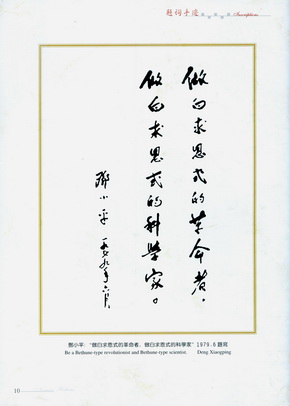 题词手迹
Inscription
做白求恩式的革命者，
做白求恩式的科学家。
邓小平 一九七九年六月
鄧小平：“做白求恩式的革命者，做白求恩式的科學家”1979.6 題寫
Be a Bethune-type revolutionist and Bethune-type scientist. Deng Xiaoping
10